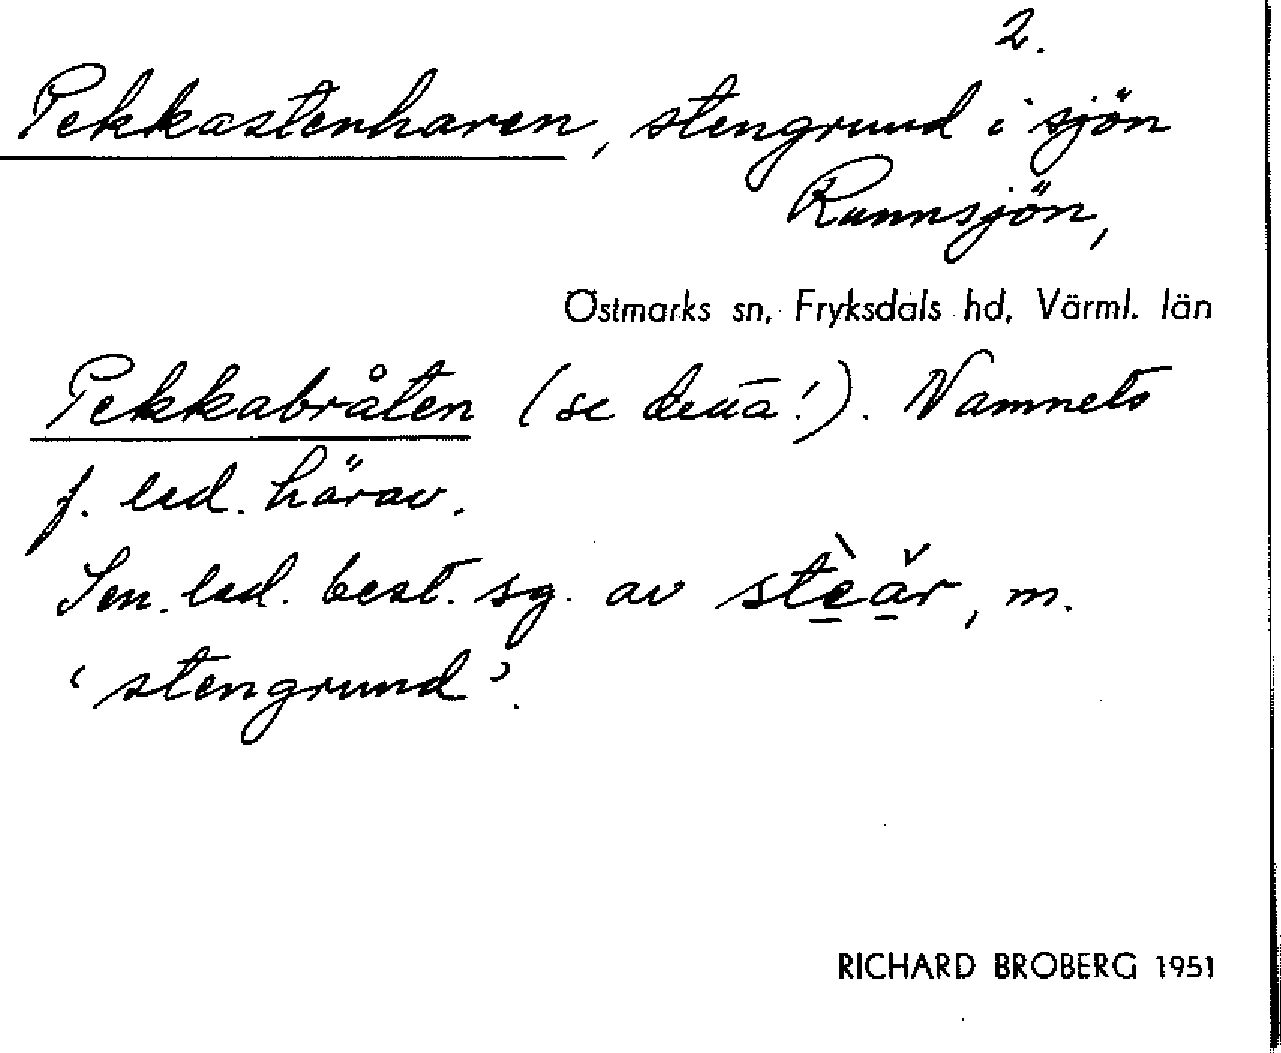 2.
Pekkastenharen, stengrund i sjön
Runnsjön,
Östmarks sn, Fryksdals hd, Värml. län
Pekkabråten (se den̄a!). Namnets
f. led. härav.
Sen. led. best. sg. av stè̠ǎ̠r, m.
‘stengrund’.
RICHARD BROBERG 1951